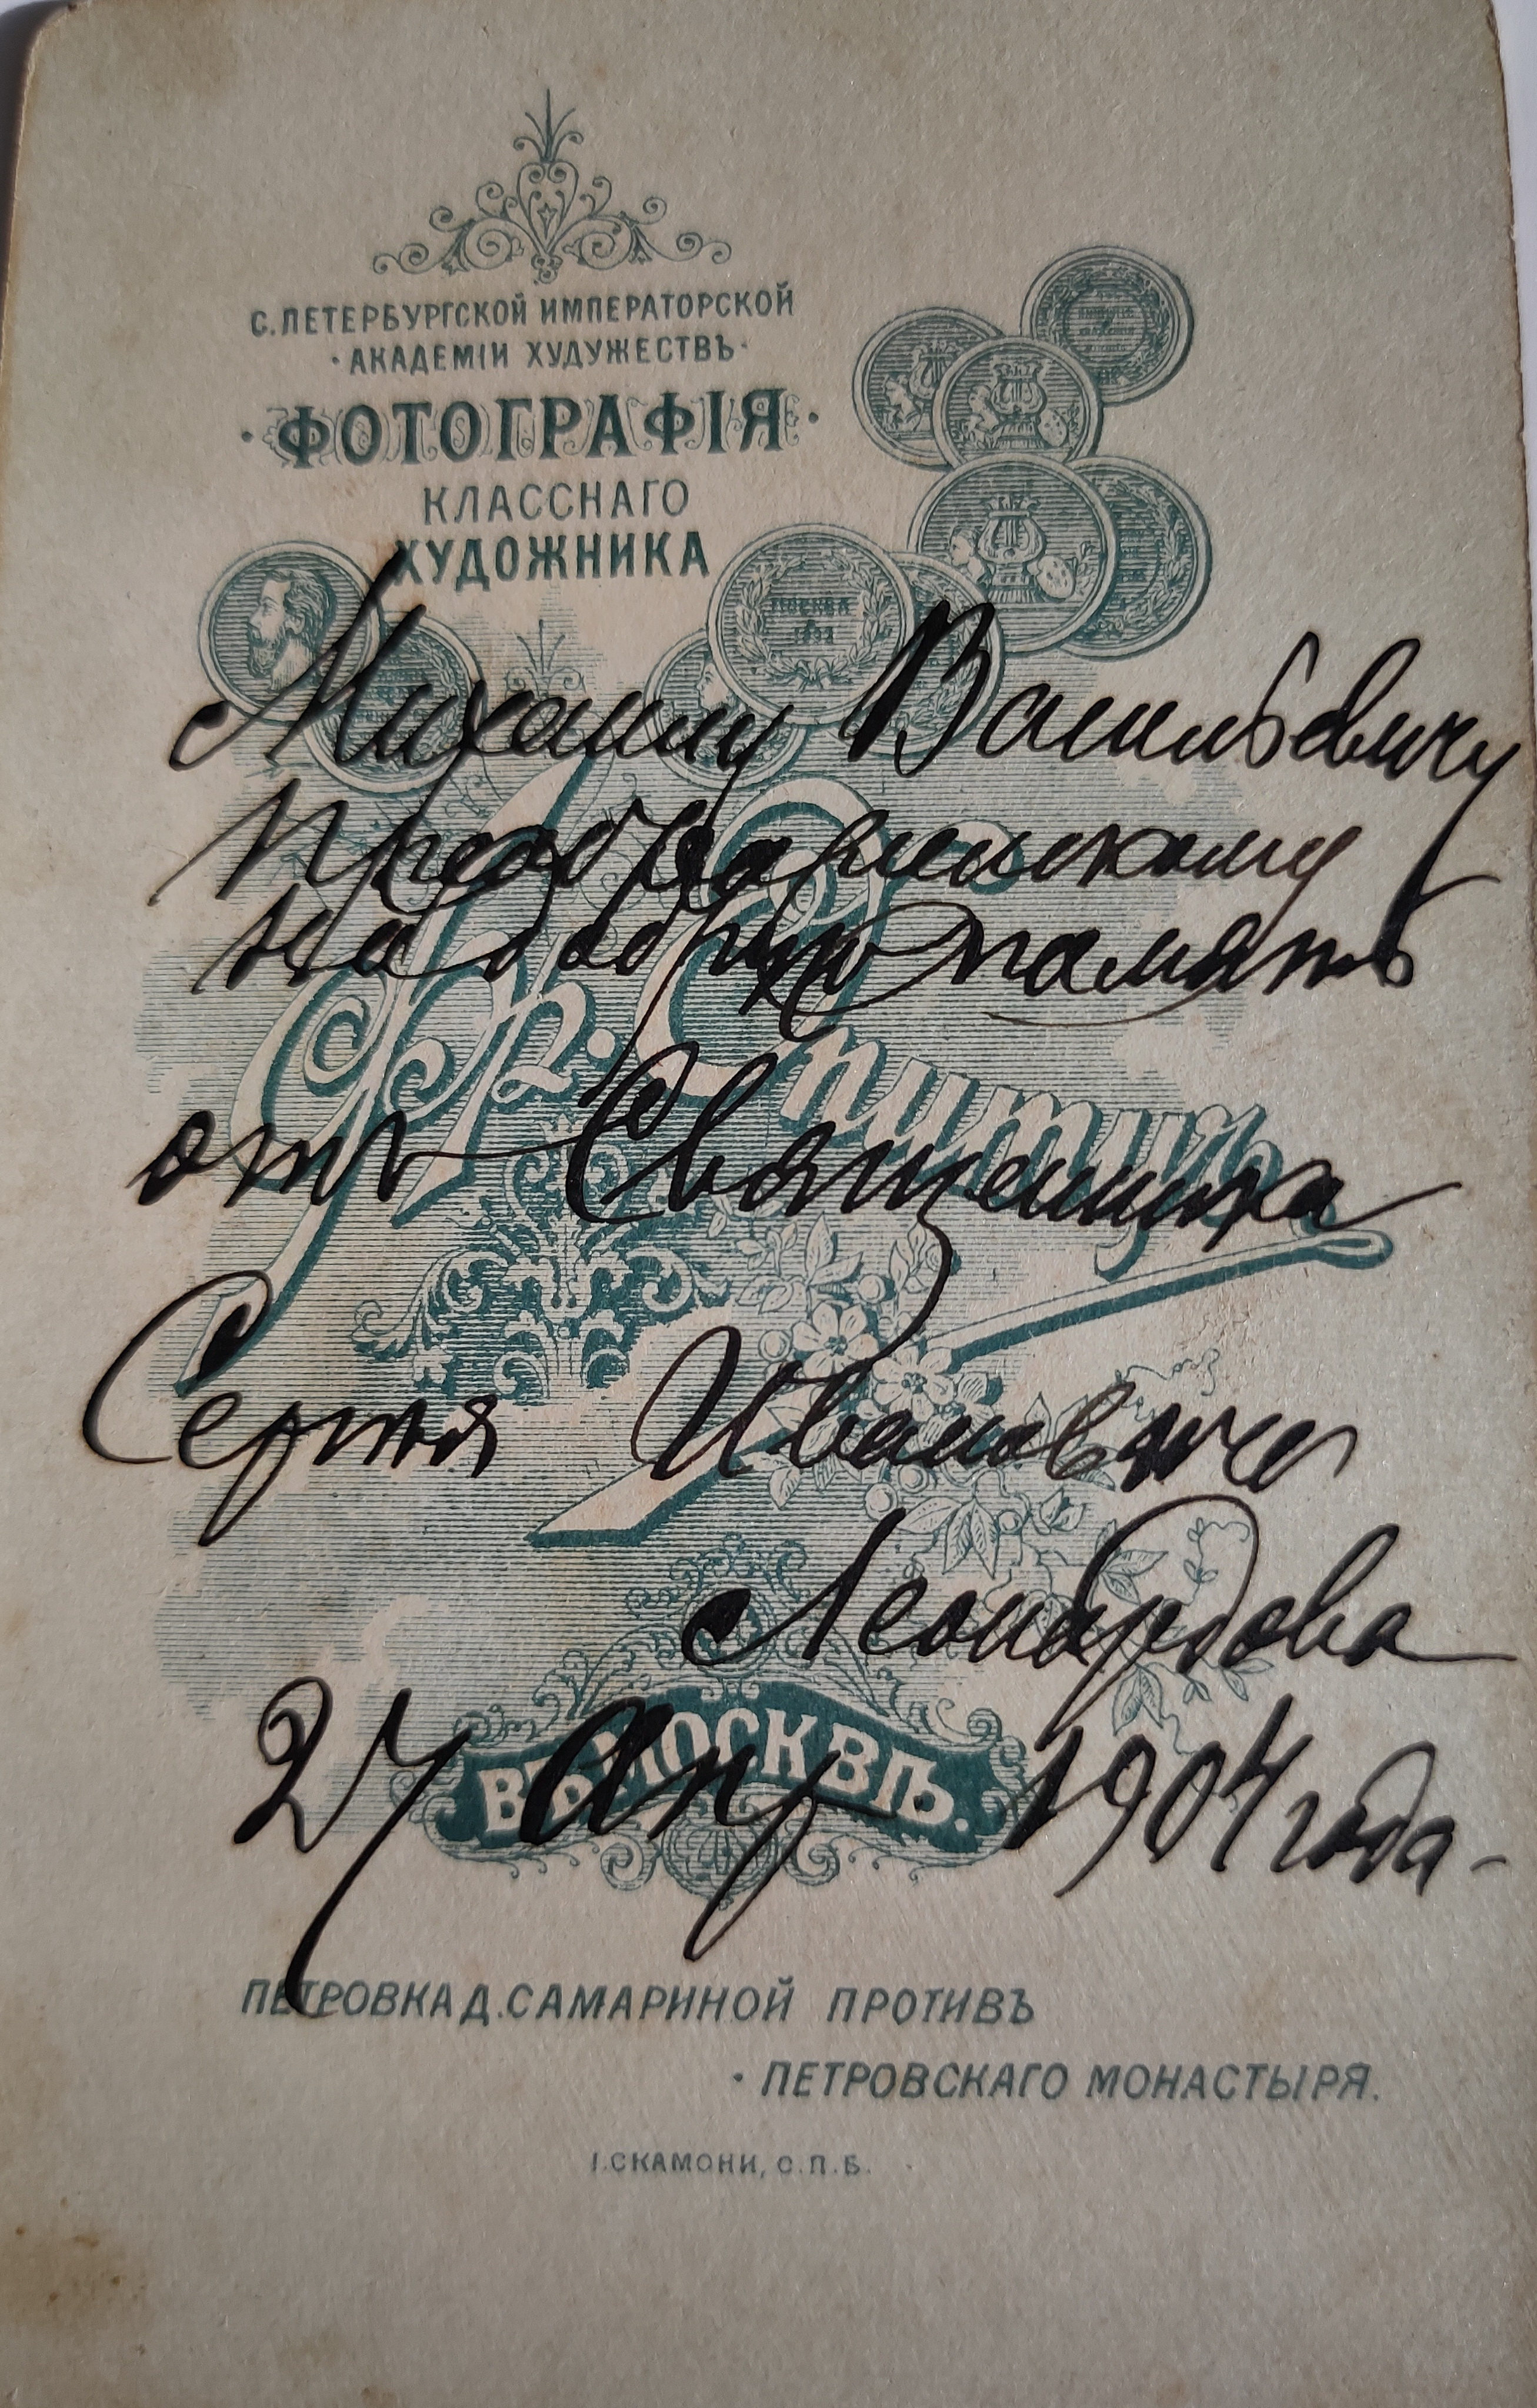 С.ПЕТЕРБУРГСКОЙ ИМПЕРАТОРСКОЙ
·АКАДЕМІИ ХУДУЖЕСТВЪ·
·ФОТОГРАФІЯ·
КЛАССНАГО
ХУДОЖНИКА
МОСКВА
Михаилу Васильевичу
Преображенскому
на добрую память
Фр. Опитцъ
отъ Священника
Сергія Ивановича
Леонардова
ВЪ МОСКВѢ.
27 Апр 1904 года-
ПЕТРОВКА Д. САМАРИНОЙ ПРОТИВЪ
·ПЕТРОВСКАГО МОНАСТЫРЯ.
І.СКАМОНИ, С.П.Б.